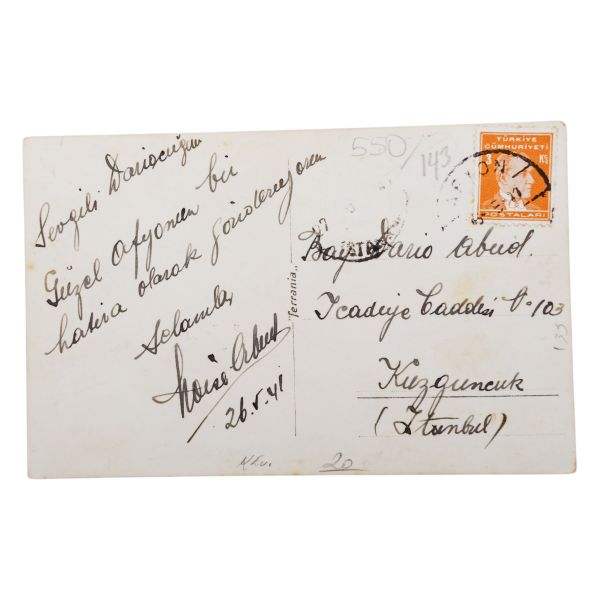 Sevgili Dariocuğum
Güzel Afyonun bir
hatıra olarak gönderiyorum
Selamlar
26.V.41
Terrania
550/143
TÜRKİYE
CÜMHURİYETİ
3 KS
POSTALARI
AFYON
Bay Dario Abud.
İcadiye Caddesi No 103
Kuzguncuk
(İstanbul)
133
20